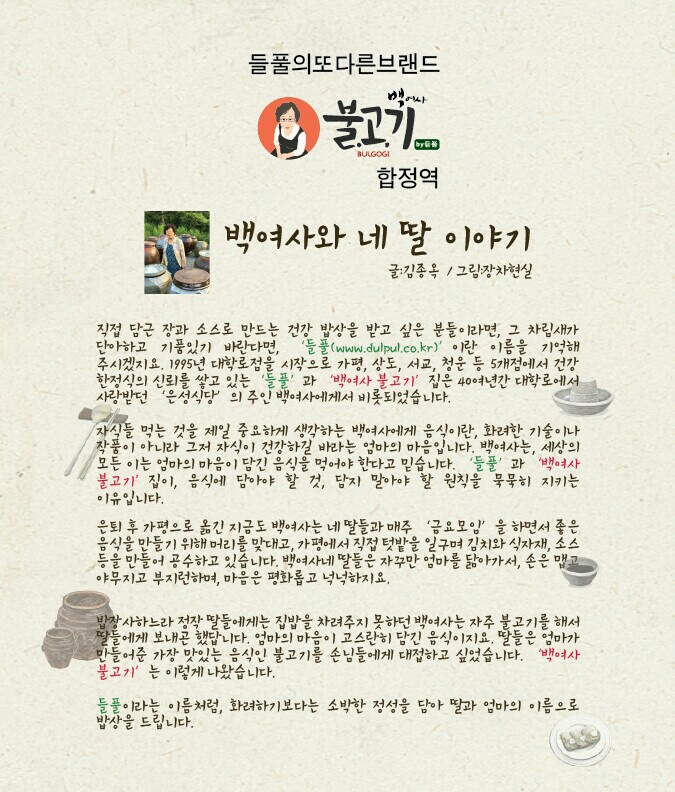 들풀의또다른브랜드
백여사
불고기
by들풀
BULGOGI
합정역
백여사와 네 딸 이야기
글:김종옥 / 그림:장차현실
직접 담근 장과 소스로 만드는 건강 밥상을 받고 싶은 분들이라면, 그 차림새가
단아하고 기품있기 바란다면, ‘들풀(www.dulpul.co.kr)’ 이란 이름을 기억해
주시겠지요. 1995년 대학로점을 시작으로 가평, 상도, 서교, 청운 등 5개점에서 건강
한정식의 신뢰를 쌓고 있는 ‘들풀’ 과 ‘백여사 불고기’ 집은 40여년간 대학로에서
사랑받던 ‘은성식당’ 의 주인 백여사에게서 비롯되었습니다.
자식들 먹는 것을 제일 중요하게 생각하는 백여사에게 음식이란, 화려한 기술이나
작품이 아니라 그저 자식이 건강하길 바라는 엄마의 마음입니다. 백여사는, 세상의
모든 이는 엄마의 마음이 담긴 음식을 먹어야 한다고 믿습니다. ‘들풀’ 과 ‘백여사
불고기’ 집이, 음식에 담아야 할 것, 담지 말아야 할 원칙을 묵묵히 지키는
이유입니다.
은퇴 후 가평으로 옮긴 지금도 백여사는 네 딸들과 매주 ‘금요모임’ 을 하면서 좋은
음식을 만들기 위해 머리를 맞대고, 가평에서 직접 텃밭을 일구며 김치와 식자재, 소스
등을 만들어 공수하고 있습니다. 백여사네 딸들은 자꾸만 엄마를 닮아가서, 손은 맵고
야무지고 부지런하며, 마음은 평화롭고 넉넉하지요.
밥장사하느라 정작 딸들에게는 집밥을 차려주지 못하던 백여사는 자주 불고기를 해서
딸들에게 보내곤 했답니다. 엄마의 마음이 고스란히 담긴 음식이지요. 딸들은 엄마가
만들어준 가장 맛있는 음식인 불고기를 손님들에게 대접하고 싶었습니다. ‘백여사
불고기’ 는 이렇게 나왔습니다.
들풀이라는 이름처럼, 화려하기보다는 소박한 정성을 담아 딸과 엄마의 이름으로
밥상을 드립니다.